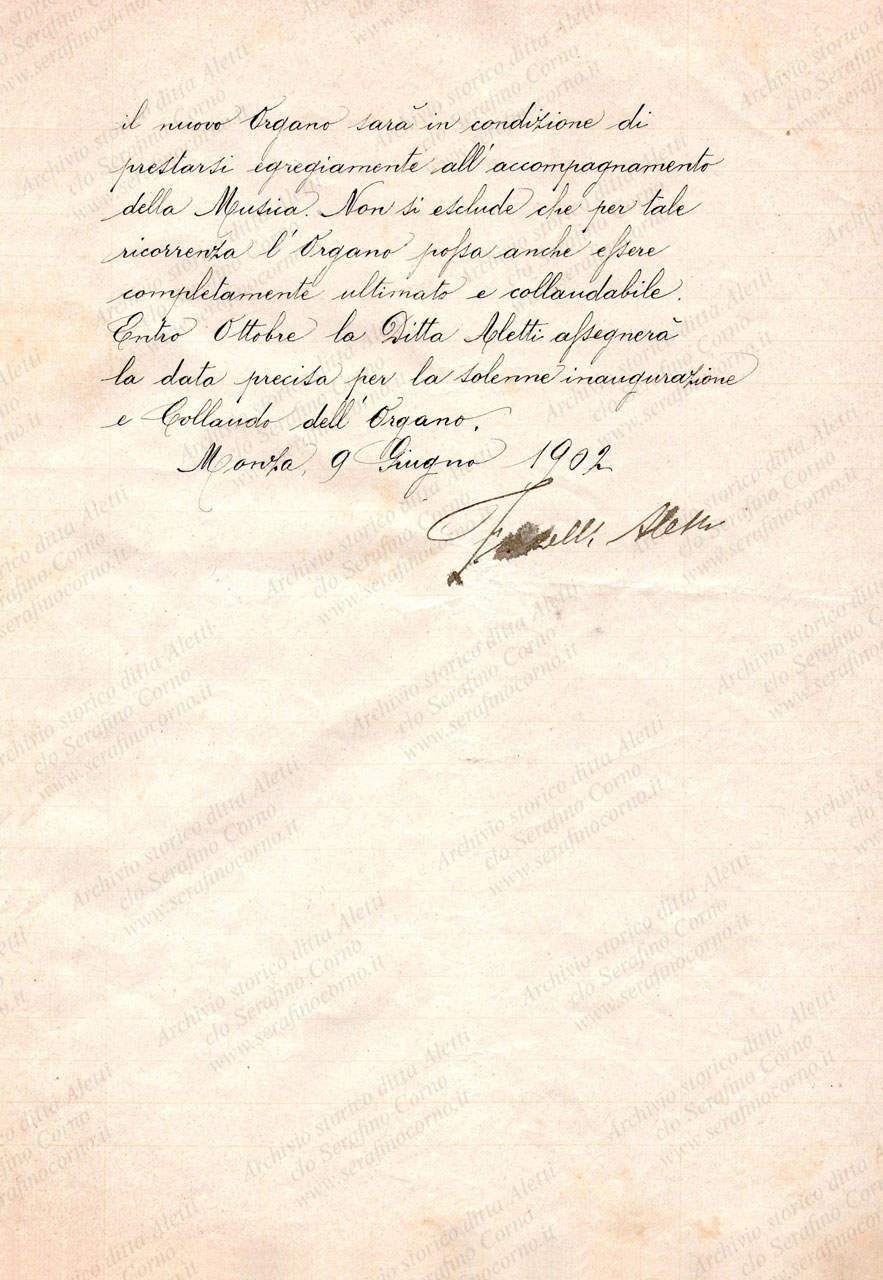 il nuovo Organo sarà in condizione di
prestarsi egregiamente all'accompagnamento
della Musica. Non si esclude che per tale
ricorrenza l'Organo possa anche essere
completamente ultimato e collaudabile.
Entro Ottobre la Ditta Aletti assegnerà
la data precisa per la solenne inaugurazione
e Collaudo dell'Organo.
Monza, 9 Giugno 1902
Fratelli Aletti
Archivio storico ditta Aletti
c/o Serafino Corno
www.serafinocorno.it